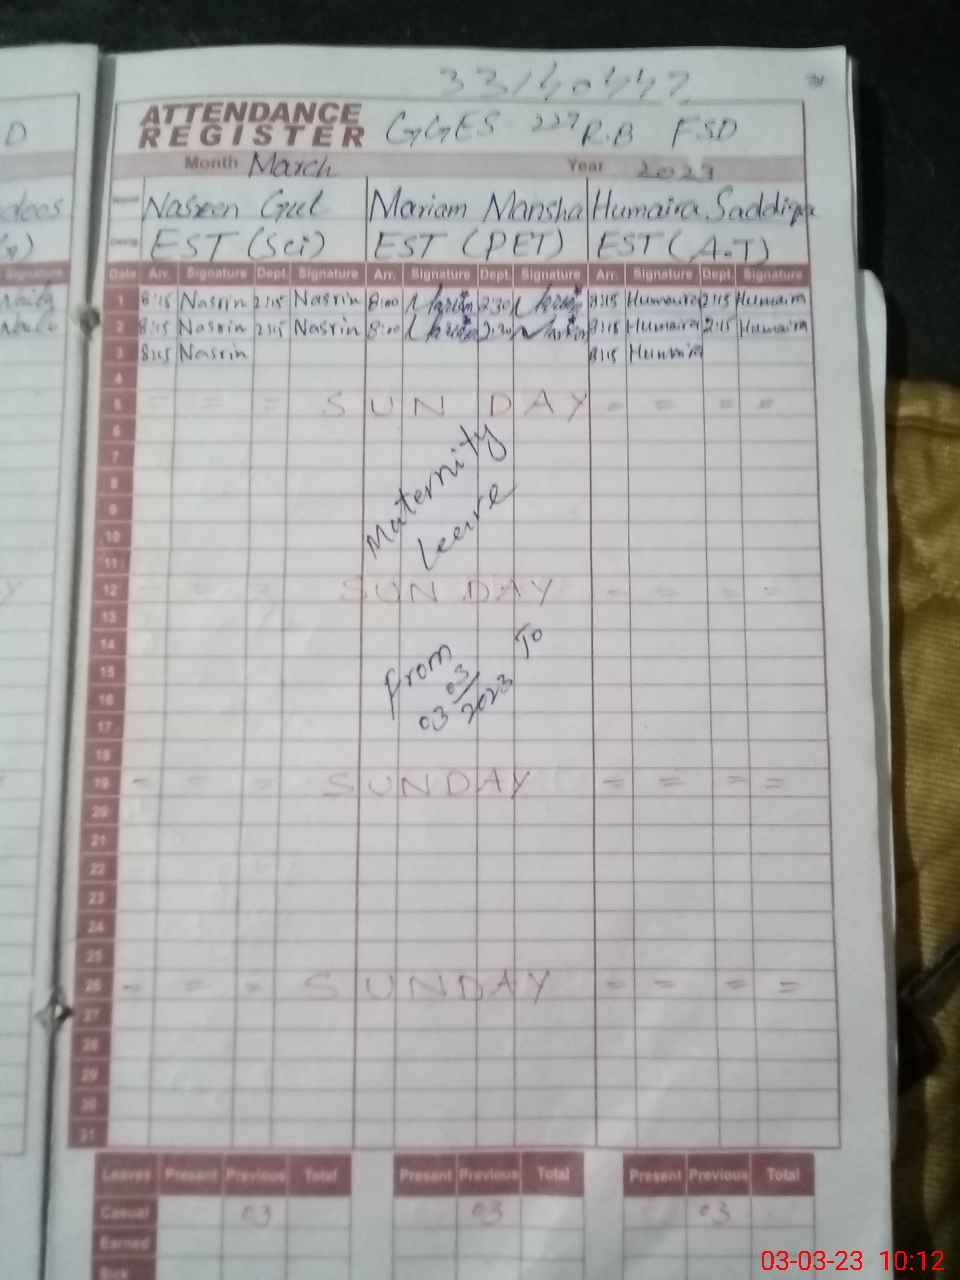 33140447
ATTENDANCE
REGISTER GGES 227 R.B FSD
Month March Year 2023
Nasreen Gul Mariam Mansha Humaira Saddiqa
EST (Sci) EST (PET) EST (A.T)
Date Arr. Signature Dept. Signature Arr. Signature Dept. Signature Arr. Signature Dept. Signature
1 8:15 Nasrin 2:15 Nasrin 8:00 2:30 8:15 Humaira 2:15 Humaira
2 8:15 Nasrin 2:15 Nasrin 8:00 2:30 8:15 Humaira 2:15 Humaira
3 8:15 Nasrin 8:15 Humaira
4
5 - = = SUNDAY = = = =
6
7
8
9
10
11
Maternity
Leave
12 - - - SUNDAY - - - -
13
14
15
16
17
From
03 03/2023 To
18
19 - = = SUNDAY = = = =
20
21
22
23
24
25
26 - = = SUNDAY = = = =
27
28
29
30
31
Leaves Present Previous Total Present Previous Total Present Previous Total
Casual 03 03 03
Earned
Sick
D
Signature
03-03-23 10:12